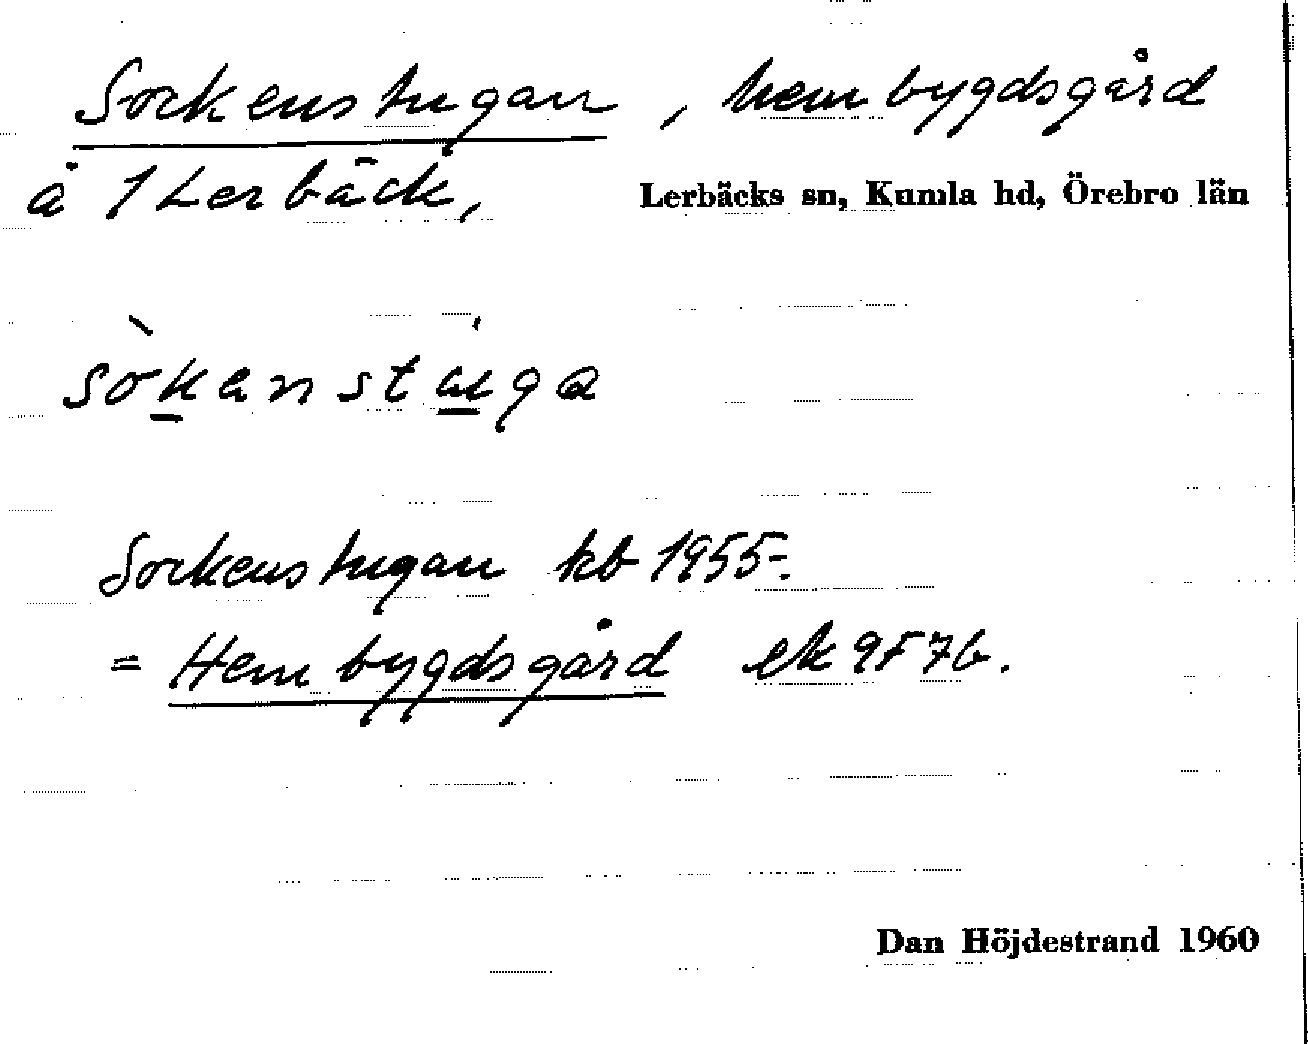 Sockenstugan, hembygdsgård
å 1 Lerbäck, Lerbäcks sn, Kumla hd, Örebro län
Sockenstugan kb 1955-.
= Hembygdsgård ek 9F7b.
Dan Höjdestrand 1960